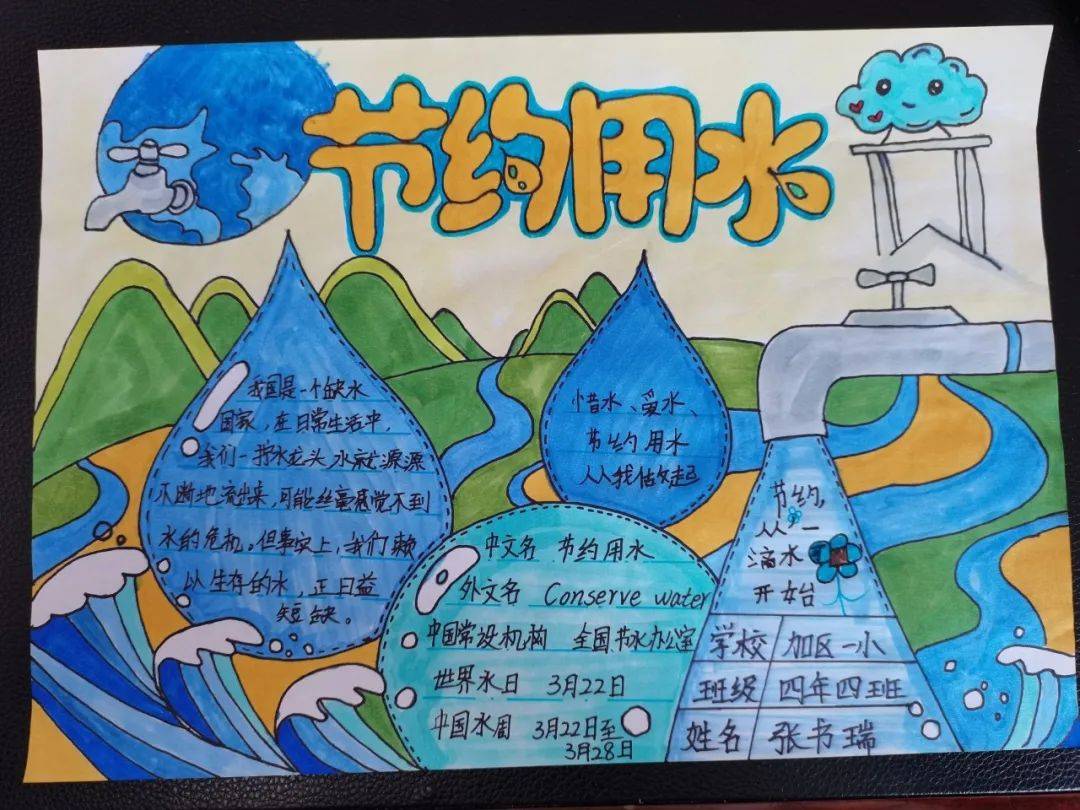 节约用水
我国是一个缺水
国家,在日常生活中,
我们一拧水龙头,水就源源
不断地流出来,可能丝毫感觉不到
水的危机。但事实上,我们赖
以生存的水,正日益
短缺。
惜水、爱水、
节约用水
从我做起
中文名 节约用水
外文名 Conserve water
中国常设机构 全国节水办公室
世界水日 3月22日
中国水周 3月22日至
3月28日
节约,
从一
滴水
开始
学校 加区一小
班级 四年四班
姓名 张书瑞